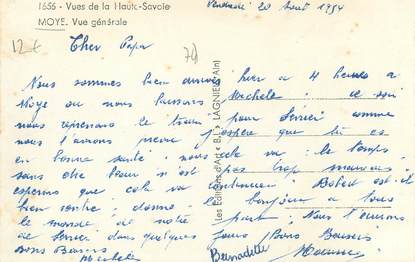 1656 - Vues de la Haute-Savoie
MOYE. Vue générale
Vendredi 20 Aout 1954
Cher Papa
Nous sommes bien arrivés hier a 4 heures a
Moye ou nous laissons Michèle : ce soir
nous reprenons le train pour Serrier comme
nous l'avions prevu j'espère que tu es
en bonne santé : nous cela va : le temps
sans être beau n'est pas trop mauvais
esperons que cela va continuer Bobed est-il
bien rentré : donne le bonjour a tous
le monde de notre part ; Nous t'ecrirons
de Serrier dans quelques jours Bons Baisers
Bons Baisers
Michele
Bernadette
Les Editions d'Art « B.L » LAGNIEU (Ain)